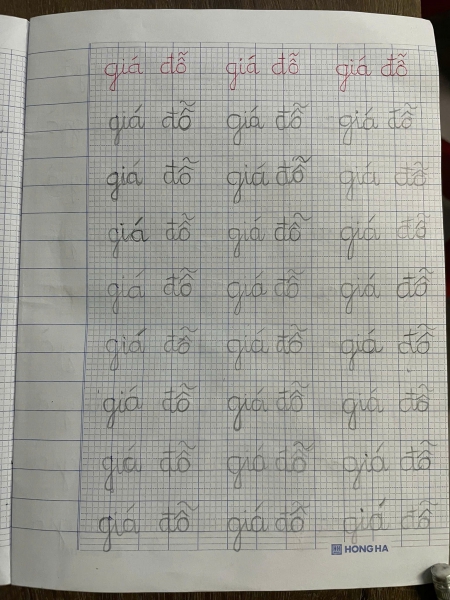 giá đỗ giá đỗ giá đỗ
giá đỗ giá đỗ giá đỗ
giá đỗ giá đỗ giá đỗ
giá đỗ giá đỗ giá đỗ
giá đỗ giá đỗ giá đỗ
giá đỗ giá đỗ giá đỗ
giá đỗ giá đỗ giá đỗ
giá đỗ giá đỗ giá đỗ
giá đỗ giá đỗ giá đỗ
HONG HA